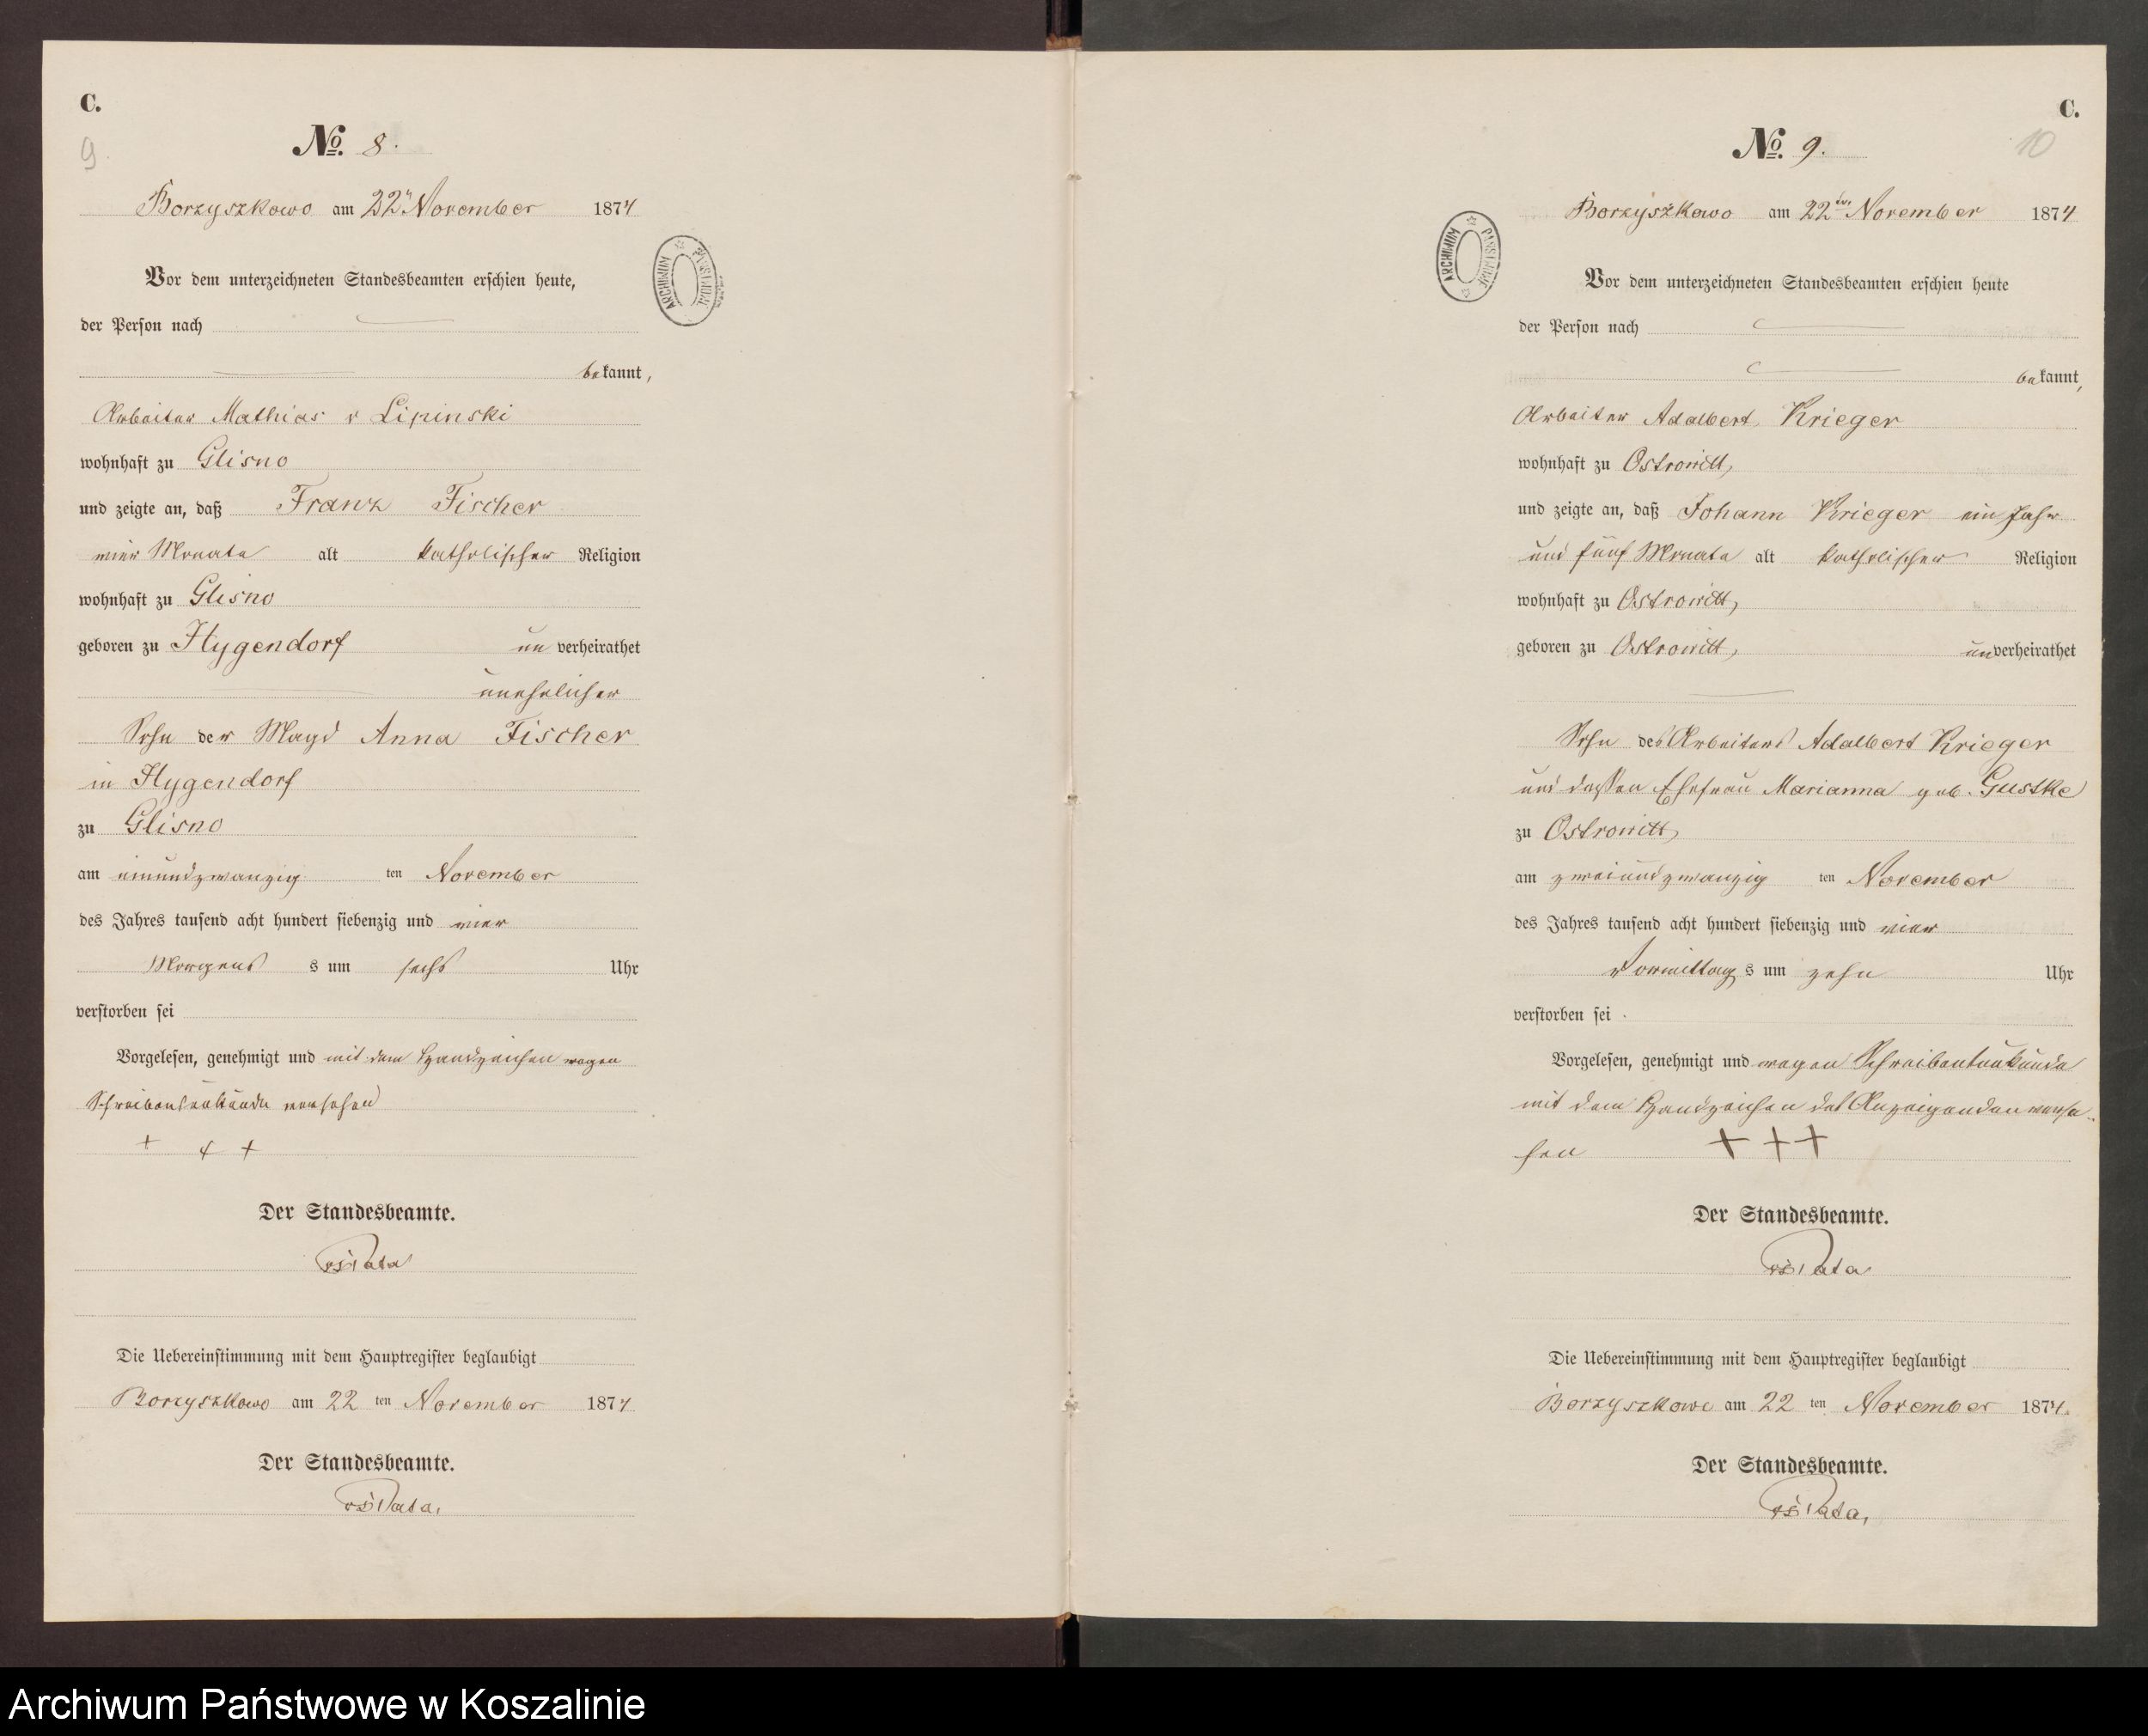 C.
9.
No. 8.
Borzyszkowo am 22n November 1874
Vor dem unterzeichneten Standesbeamten erschien heute,
der Person nach
bekannt,
Arbeiter Mathias v Lipinski
wohnhaft zu Glisno
und zeigte an, daß Franz Fischer
vier Monate alt katholischer Religion
wohnhaft zu Glisno
geboren zu Hygendorf unverheirathet
unehelicher
Sohn der Magd Anna Fischer
in Hygendorf
zu Glisno
am einundzwanzig ten November
des Jahres tausend acht hundert siebenzig und vier
Morgens s um sechs Uhr
verstorben sei
Vorgelesen, genehmigt und mit dem Handzeichen wegen
Schreibensunkunde versehen
+ + +
Der Standesbeamte.
Die Uebereinstimmung mit dem Hauptregister beglaubigt
Borzyszkowo am 22 ten November 1874
Der Standesbeamte.
ARCHIWUM
C.
10
No. 9.
Borzyszkowo am 22ten November 1874
Vor dem unterzeichneten Standesbeamten erschien heute
der Person nach
bekannt,
Arbeiter Adalbert Krieger
wohnhaft zu Ostrowitt,
und zeigte an, daß Johann Krieger ein Jahr
und fünf Monate alt katholischer Religion
wohnhaft zu Ostrowitt,
geboren zu Ostrowitt, unverheirathet
Sohn des Arbeiters Adalbert Krieger
und dessen Ehefrau Marianna geb. Gustke
zu Ostrowitt,
am zweiundzwanzig ten November
des Jahres tausend acht hundert siebenzig und vier
Vormittag s um zehn Uhr
verstorben sei.
Vorgelesen, genehmigt und wegen Schreibensunkunde
mit dem Handzeichen des Anzeigenden verse-
hen + + +
Der Standesbeamte.
Die Uebereinstimmung mit dem Hauptregister beglaubigt
Borzyszkowo am 22 ten November 1874.
Der Standesbeamte.
ARCHIWUM
Archiwum Państwowe w Koszalinie